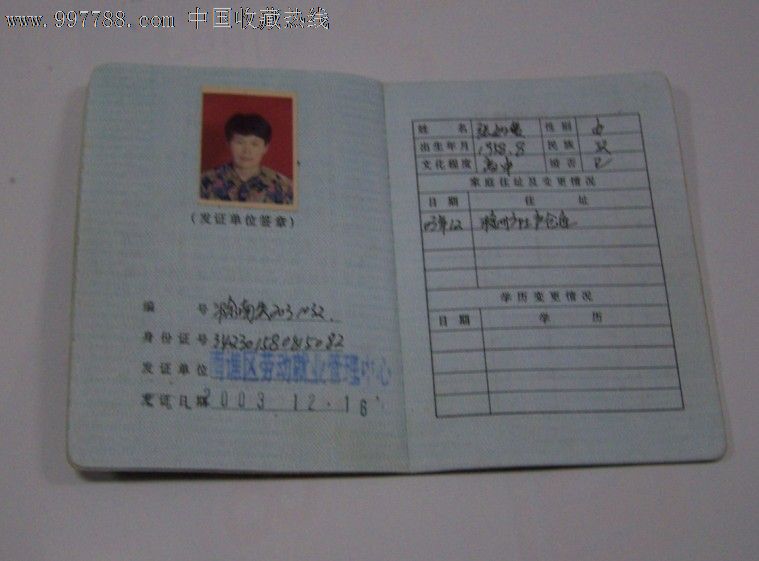 www.997788.com 中国收藏热线
(发证单位签章)
编 号
身份证号 342301580815082
发证单位 南谯区劳动就业管理中心
发证日期 2003.12.16
姓 名 性 别
出生年月 1958.8 民 族 汉
文化程度 高中 婚 否 已
家庭住址及变更情况
日 期 住 址
03年12
学历变更情况
日 期 学 历